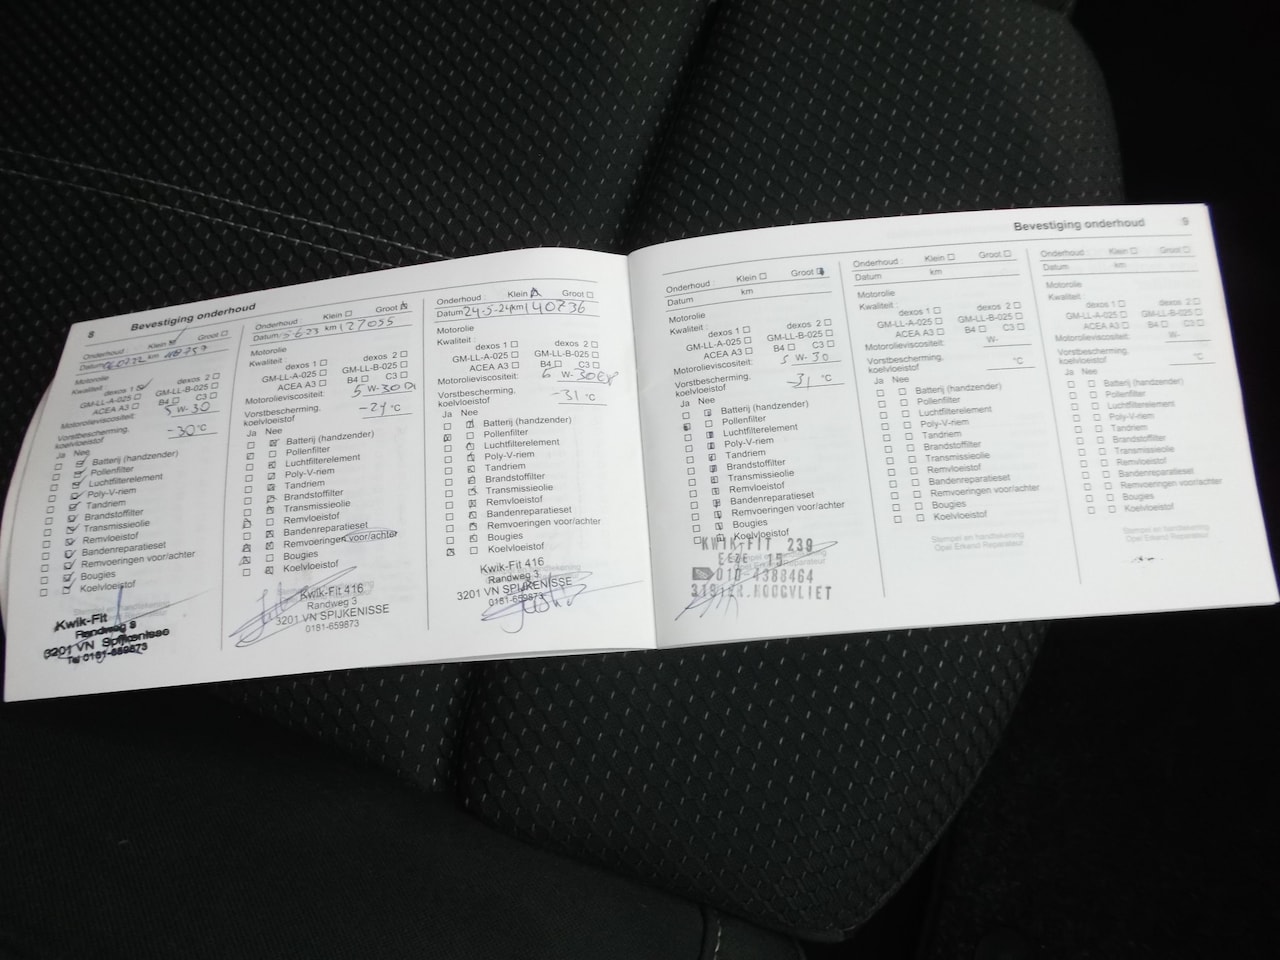 8 Bevestiging onderhoud
Onderhoud : Klein Groot
Datum km
Motorolie
Kwaliteit : dexos 1 dexos 2
GM-LL-A-025 GM-LL-B-025
ACEA A3 B4 C3
Motorolieviscositeit: 5 W-30
Vorstbescherming,
koelvloeistof -30 °C
Ja Nee
Batterij (handzender)
Pollenfilter
Luchtfilterelement
Poly-V-riem
Tandriem
Brandstoffilter
Transmissieolie
Remvloeistof
Bandenreparatieset
Remvoeringen voor/achter
Bougies
Koelvloeistof
Kwik-Fit
Randweg 3
3201 VN Spijkenisse
Tel 0181-659873
Onderhoud : Klein Groot
Datum: 5-6-23 km 127055
Motorolie
Kwaliteit : dexos 1 dexos 2
GM-LL-A-025 GM-LL-B-025
ACEA A3 B4 C3
Motorolieviscositeit: 5 W-30
Vorstbescherming,
koelvloeistof °C
Ja Nee
Batterij (handzender)
Pollenfilter
Luchtfilterelement
Poly-V-riem
Tandriem
Brandstoffilter
Transmissieolie
Remvloeistof
Bandenreparatieset
Remvoeringen voor/achter
Bougies
Koelvloeistof
Kwik-Fit 416
Randweg 3
3201 VN SPIJKENISSE
0181-659873
Onderhoud : Klein Groot
Datum 24-5-24 km 140736
Motorolie
Kwaliteit: dexos 1 dexos 2
GM-LL-A-025 GM-LL-B-025
ACEA A3 B4 C3
Motorolieviscositeit: W-30
Vorstbescherming,
koelvloeistof -31 °C
Ja Nee
Batterij (handzender)
Pollenfilter
Luchtfilterelement
Poly-V-riem
Tandriem
Brandstoffilter
Transmissieolie
Remvloeistof
Bandenreparatieset
Remvoeringen voor/achter
Bougies
Koelvloeistof
Kwik-Fit 416
Randweg 3
3201 VN SPIJKENISSE
0181-659873
Bevestiging onderhoud 9
Onderhoud : Klein Groot
Datum km
Motorolie
Kwaliteit : dexos 1 dexos 2
GM-LL-A-025 GM-LL-B-025
ACEA A3 B4 C3
Motorolieviscositeit: 5 W-30
Vorstbescherming,
koelvloeistof -31 °C
Ja Nee
Batterij (handzender)
Pollenfilter
Luchtfilterelement
Poly-V-riem
Tandriem
Brandstoffilter
Transmissieolie
Remvloeistof
Bandenreparatieset
Remvoeringen voor/achter
Bougies
Koelvloeistof
KWIK-FIT 239
010-4388464
HOOGVLIET
Onderhoud : Klein Groot
Datum km
Motorolie
Kwaliteit : dexos 1 dexos 2
GM-LL-A-025 GM-LL-B-025
ACEA A3 B4 C3
Motorolieviscositeit: W-
Vorstbescherming,
koelvloeistof °C
Ja Nee
Batterij (handzender)
Pollenfilter
Luchtfilterelement
Poly-V-riem
Tandriem
Brandstoffilter
Transmissieolie
Remvloeistof
Bandenreparatieset
Remvoeringen voor/achter
Bougies
Koelvloeistof
Stempel en handtekening
Opel Erkend Reparateur
Onderhoud : Klein Groot
Datum km
Motorolie
Kwaliteit : dexos 1 dexos 2
GM-LL-A-025 GM-LL-B-025
ACEA A3 B4 C3
Motorolieviscositeit: W-
Vorstbescherming,
koelvloeistof °C
Ja Nee
Batterij (handzender)
Pollenfilter
Luchtfilterelement
Poly-V-riem
Tandriem
Brandstoffilter
Transmissieolie
Remvloeistof
Bandenreparatieset
Remvoeringen voor/achter
Bougies
Koelvloeistof
Stempel en handtekening
Opel Erkend Reparateur